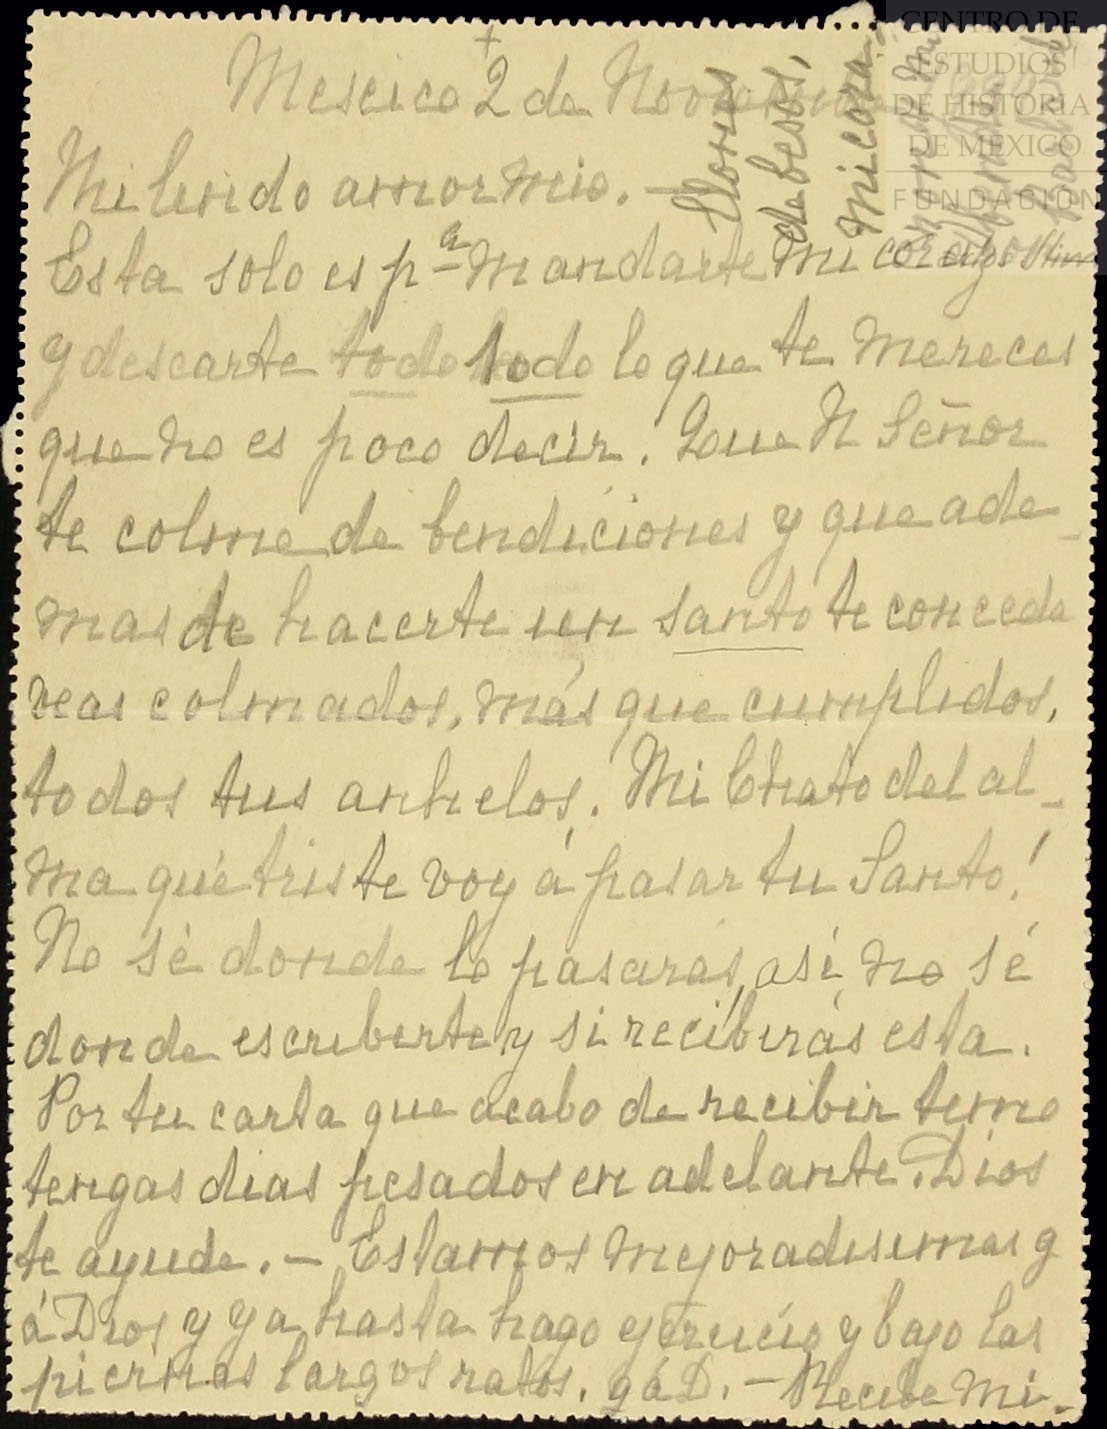 +
Mexico 2 de Noviembre
Mi lindo amor mio. —
Esta solo es pª mandarte mi corazon
y desearte todo todo lo que te mereces
que no es poco decir. Que N Señor
te colme de bendiciones y que ade-
mas de hacerte un santo te conceda
veas colmados, más que cumplidos,
todos tus anhelos. Mi Chato del al-
ma qué triste voy á pasar tu Santo!
No sé donde lo pasarás, así no sé
donde escribirte y si recibirás esta.
Por tu carta que acabo de recibir temo
tengas dias pesados en adelante. Dios
te ayude. — Estamos mejoradisimas g
á Dios y ya hasta hago ejercicio y bajo las
piernas largos ratos. g á D. — Recibe mi-
llones
de besos,
mi cora
CENTRO DE
ESTUDIOS
DE HISTORIA
DE MÉXICO
FUNDACIÓN